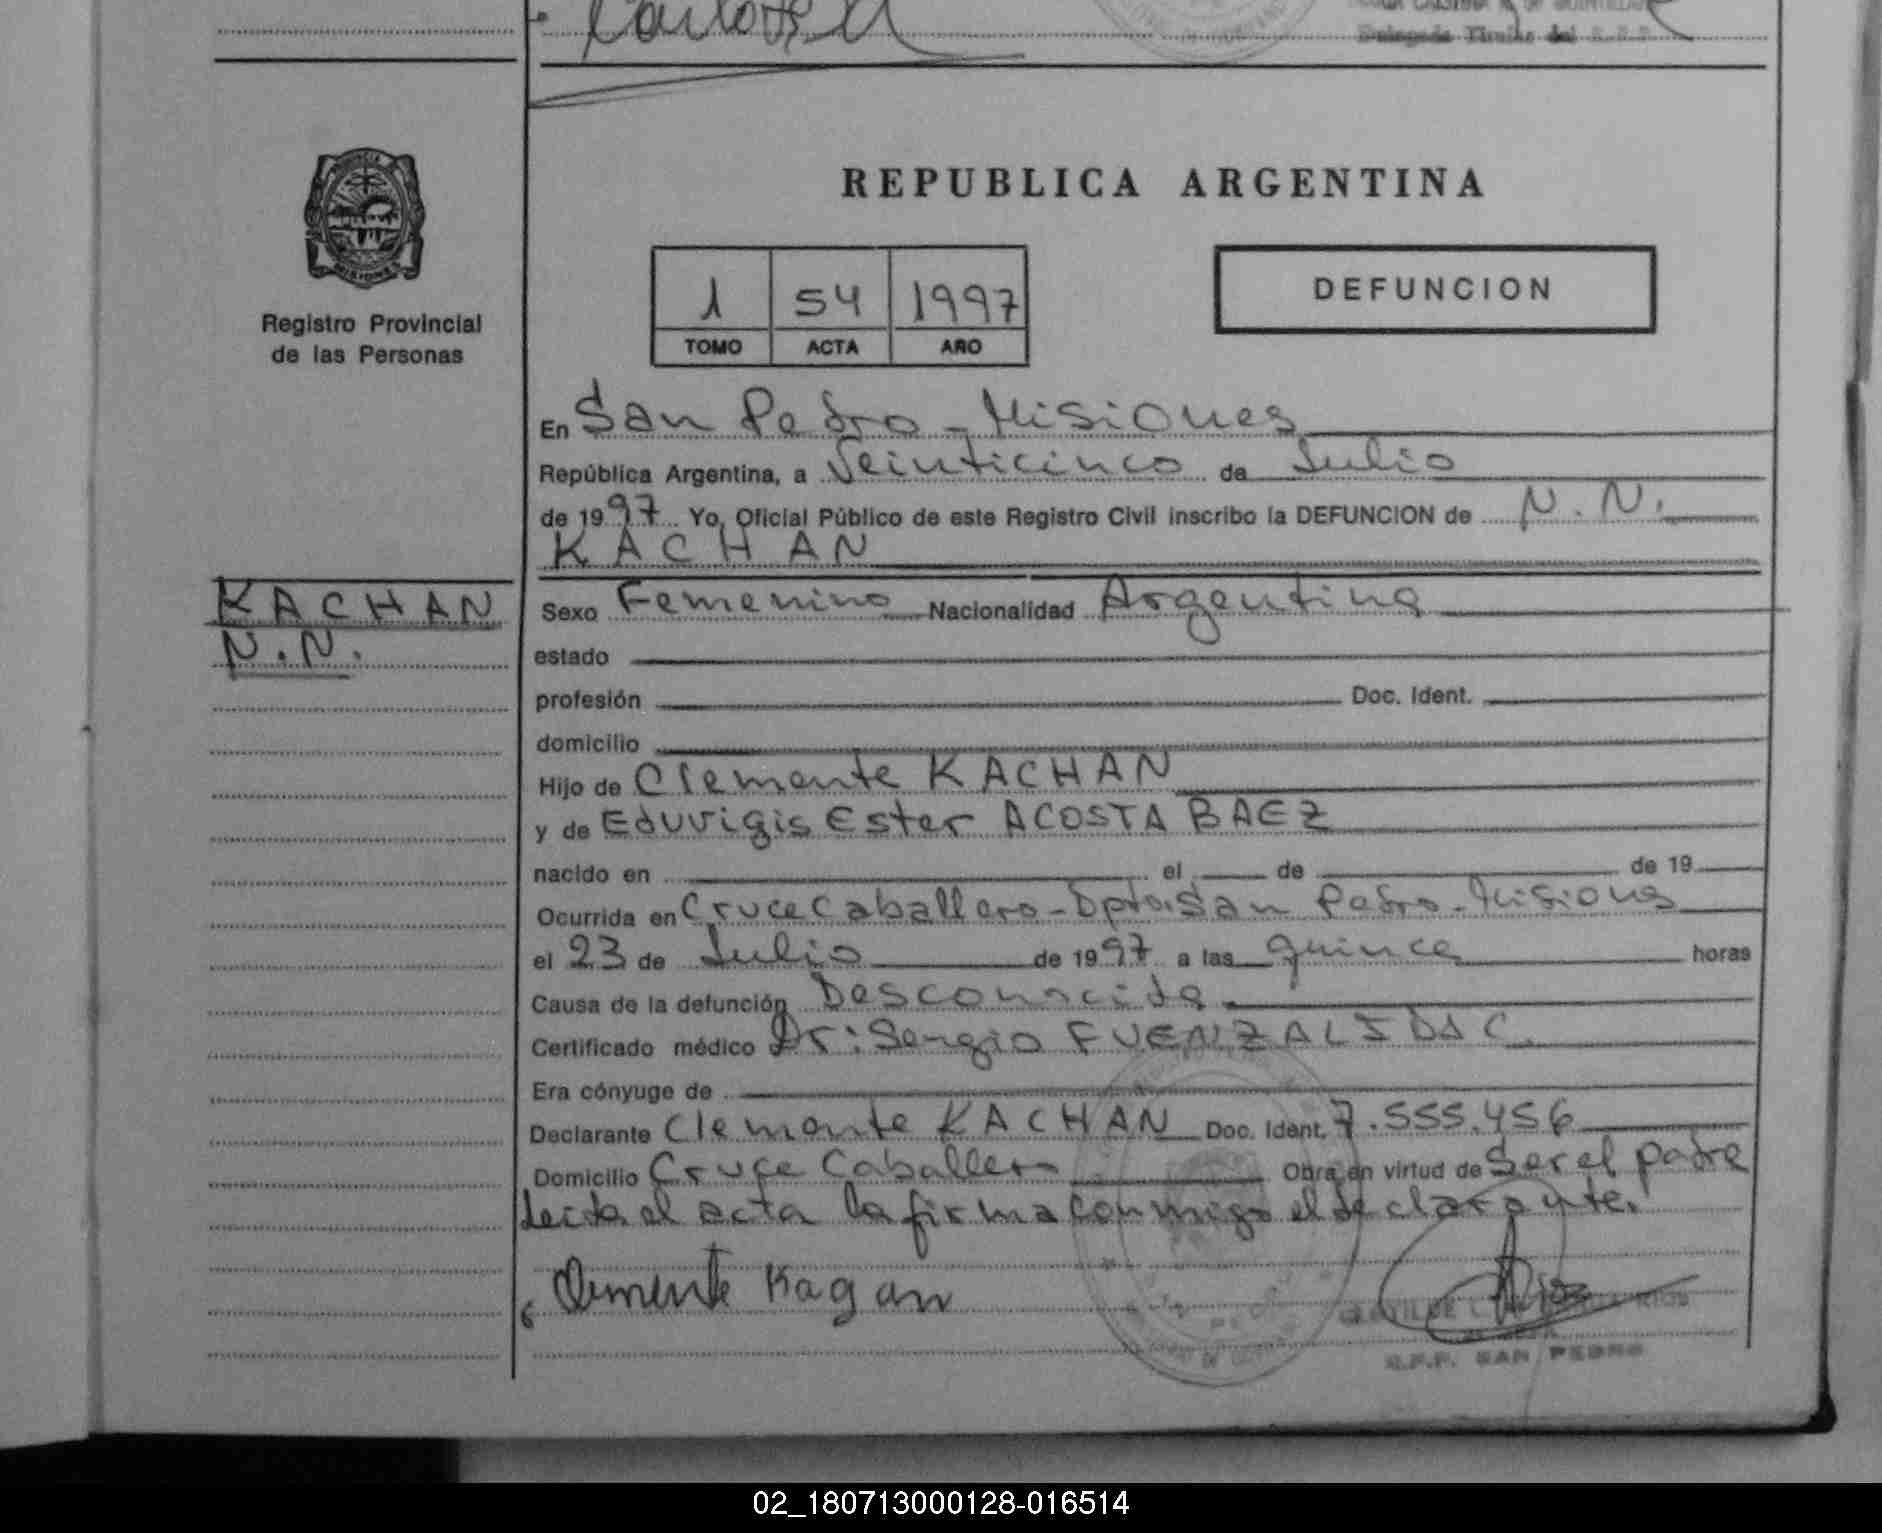 Carlos A
Delegada Titular del R.P.P.
PROVINCIA
MISIONES
Registro Provincial
de las Personas
REPUBLICA ARGENTINA
1 54 1997
TOMO ACTA AÑO
DEFUNCION
En San Pedro - Misiones
República Argentina, a Veinticinco de Julio
de 1997 Yo, Oficial Público de este Registro Civil inscribo la DEFUNCION de N.N.
KACHAN
KACHAN
N.N.
Sexo Femenino Nacionalidad Argentina
estado
profesión Doc. Ident.
domicilio
Hijo de Clemente KACHAN
y de Eduvigis Ester ACOSTA BAEZ
nacido en el de de 19
Ocurrida en Cruce Caballero - Dpto. San Pedro - Misiones
el 23 de Julio de 1997 a las quince horas
Causa de la defunción Desconocida
Certificado médico Dr: Sergio FUENZALIDA C.
Era cónyuge de
Declarante Clemente KACHAN Doc. Ident. 7.555.456
Domicilio Cruce Caballero Obra en virtud de Ser el padre
Leida el acta la firma conmigo el declarante.
Clemente Kagan
R.P.P. SAN PEDRO
02_180713000128-016514